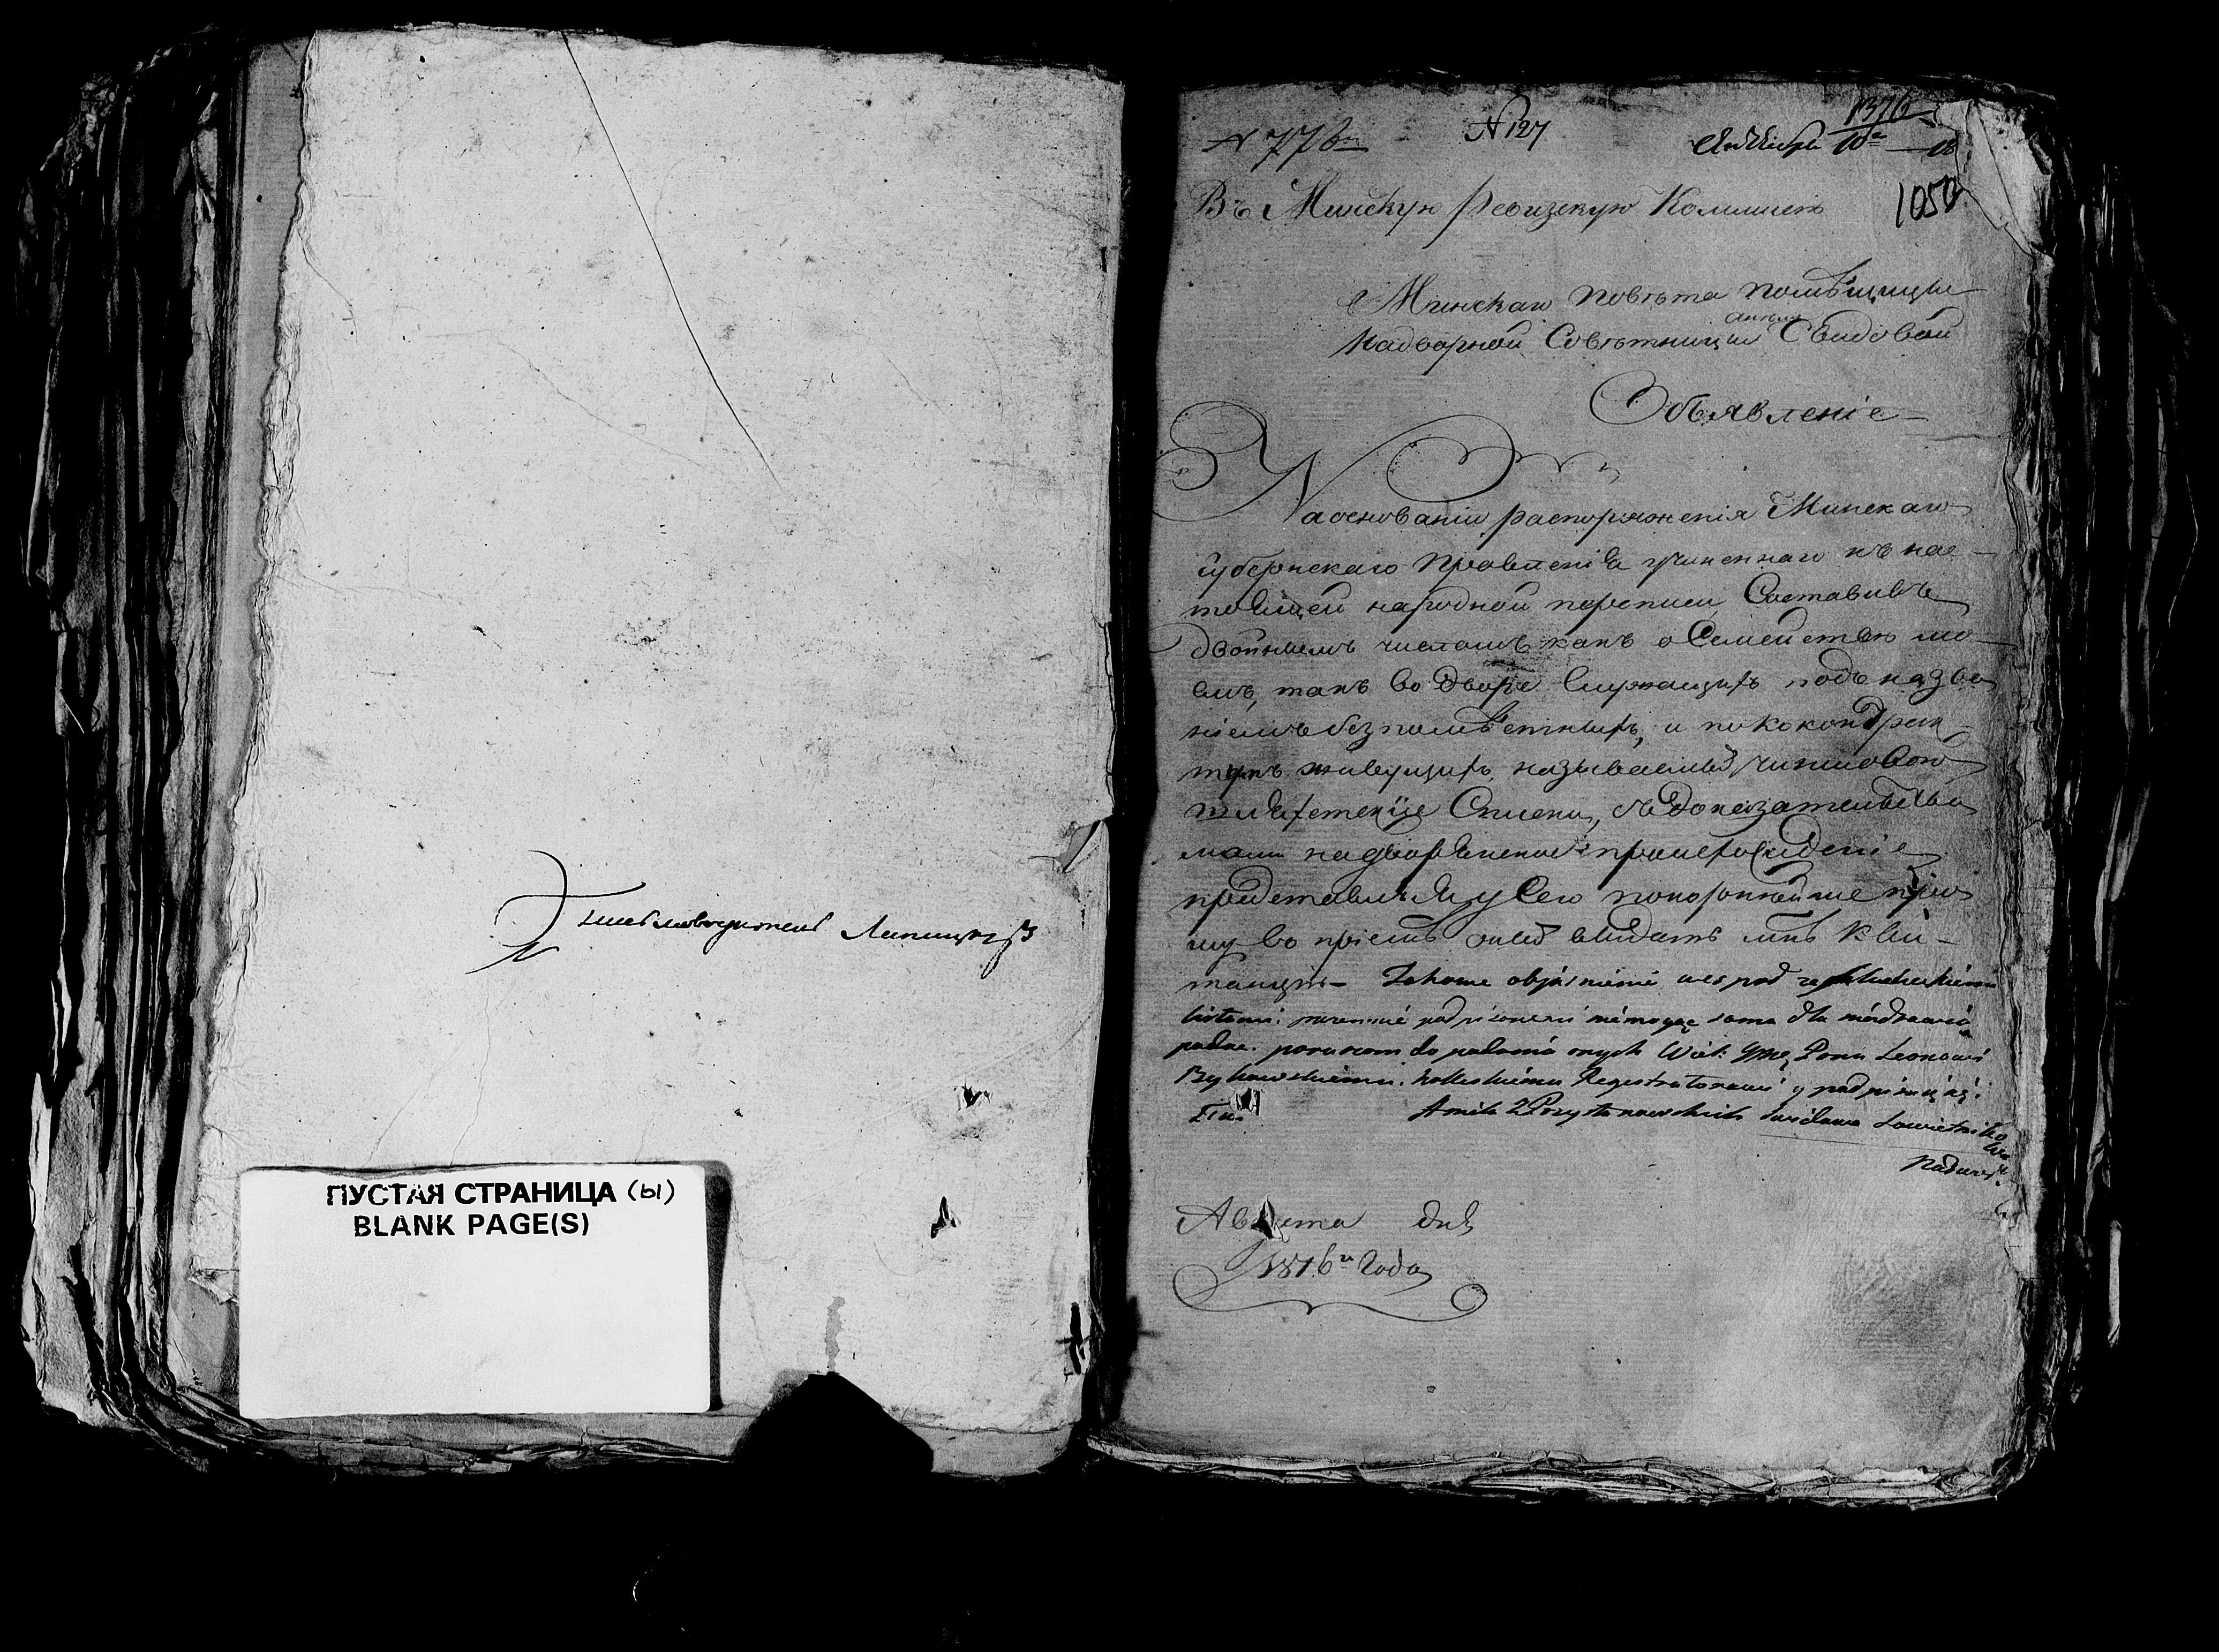 Письмоводитель Липницкій
ПУСТАЯ СТРАНИЦА (ы)
BLANK PAGE(S)
N 776
N 127
1376
1050
Въ Минскую Ревизскую Комисію
Минскаго Повѣта помѣщицы
Надворной Совѣтницы Анели Свидовой
Объявленіе
На основаніи распоряженія Минскаго
Губернскаго Правленія учиненнаго къ нас-
тоящей народной переписи, Составивъ
двойнымъ числомъ какъ о Семействѣ мо-
емъ, такъ во Дворѣ Служащихъ подъ назва
ніемъ безпомѣстныхъ, и по контрак
тамъ живущихъ называемой чиншовою
шляхетскіе Списки, съ доказательства
мами на дворянское происхожденіе
представляя у Сего покорнѣйше про
шу во пріемѣ оной выдать мнѣ Кви-
танцію Takowe objaśnienie
listami niemogąc sama dla
podać poruczam do podania onych Panu Leonowi
Bykowskiemu Registratorowi y podpisuię
Aniela z Przystanowskich Swidowa Sowietniko
wa
Nadwor:
Августа дня
1816го Года